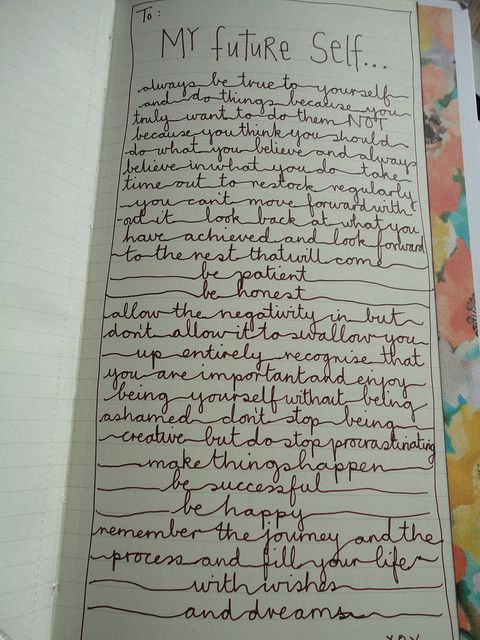 To:
MY future Self...
always be true to yourself
and do things because you
truly want to do them NOT
because you think you should
do what you believe and always
believe in what you do take
time out to restock regularly
you can't move forward with
-out it look back at what you
have achieved and look forward
to the rest that will come
be patient
be honest
allow the negativity in but
don't allow it to swallow you
up entirely recognise that
you are important and enjoy
being yourself without being
ashamed don't stop being
creative but do stop procrastinating
make things happen
be successful
be happy
remember the journey and the
process and fill your life
with wishes
and dreams
xox